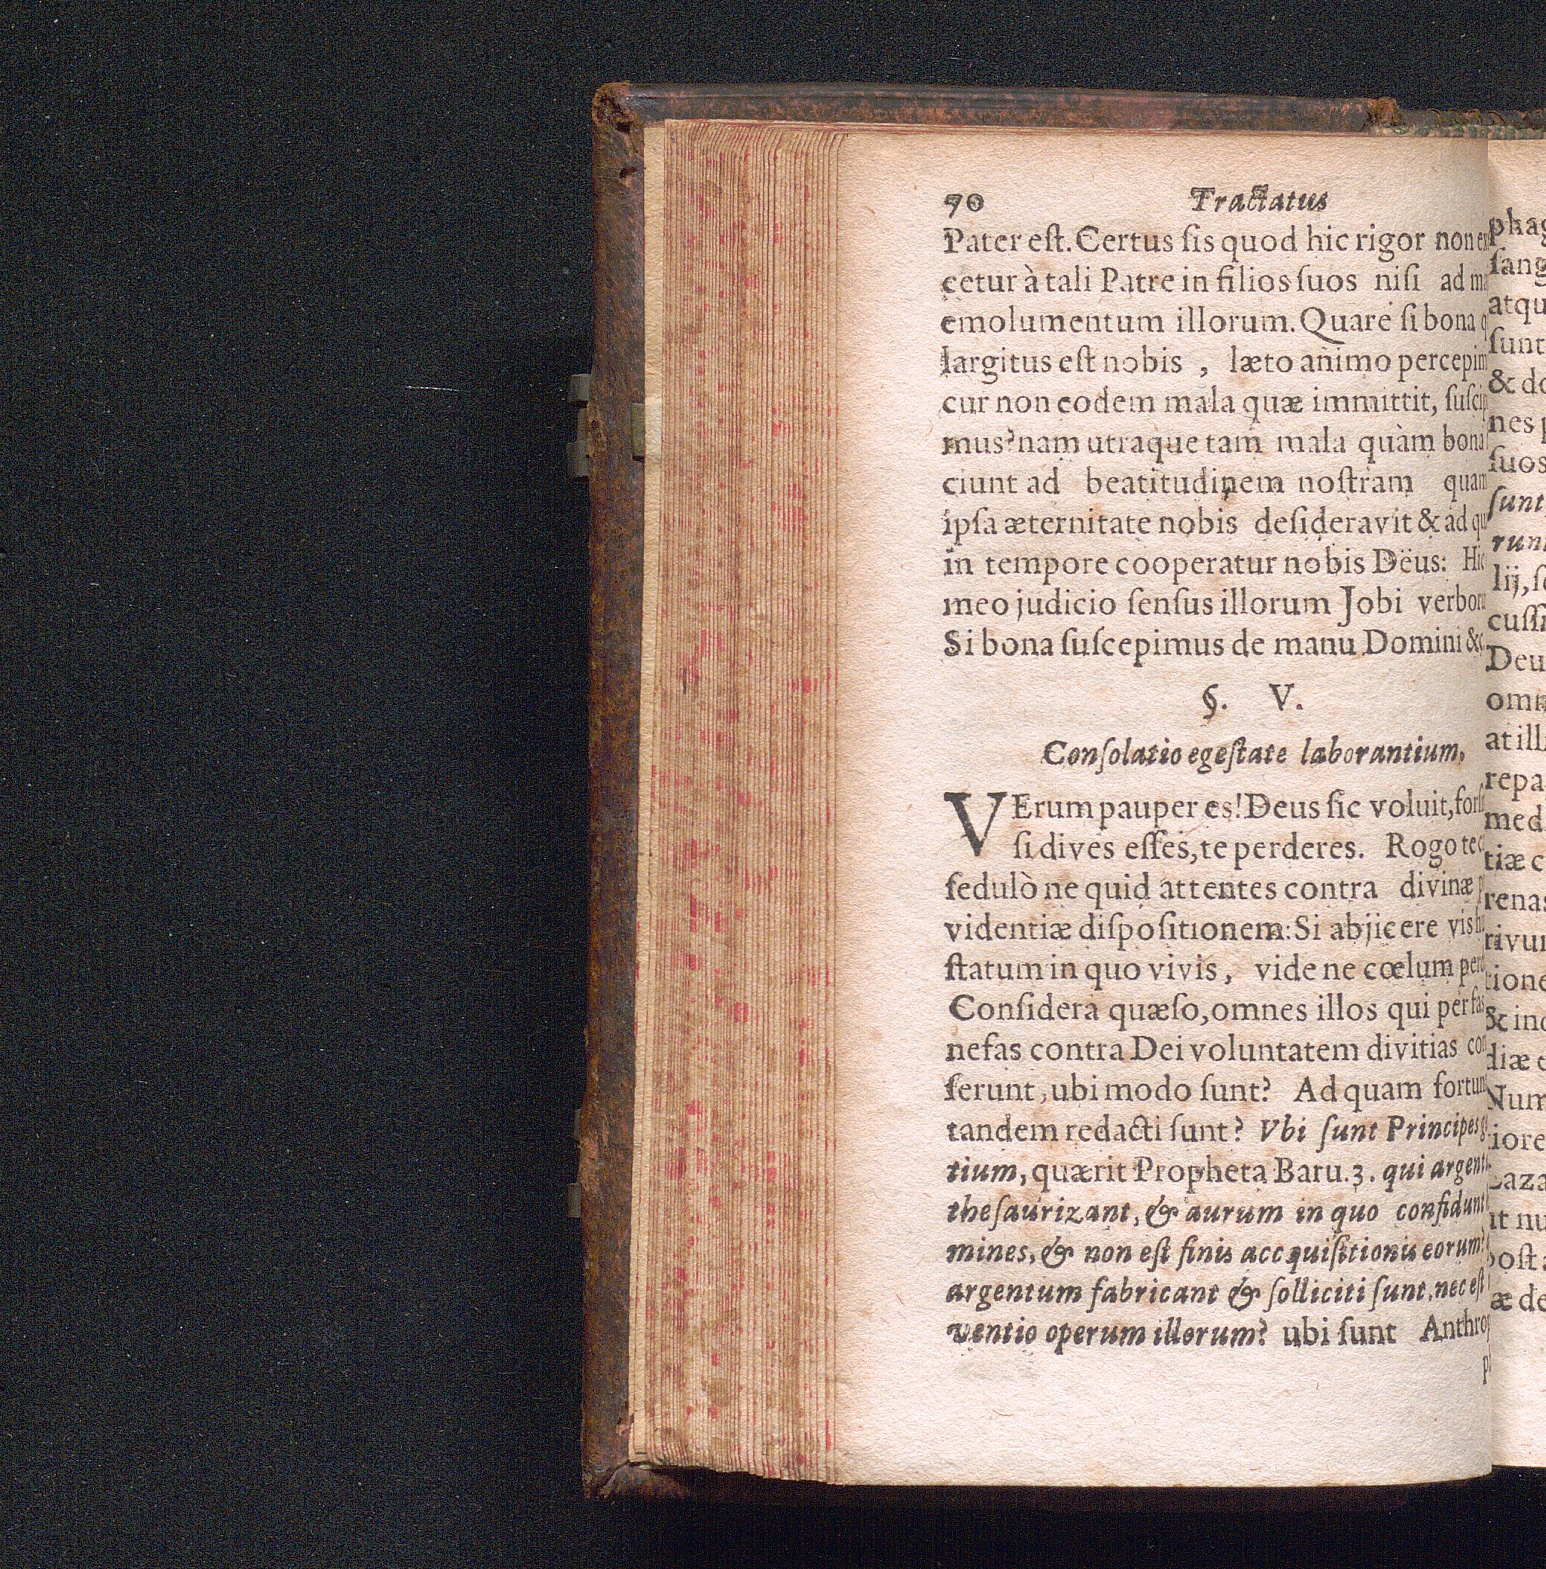 70 Tractatus
Pater eſt. Certus ſis quod hic rigor non
cetur à tali Patre in filios ſuos niſi ad
emolumentum illorum. Quare ſi bona
largitus eſt nobis , læto animo percepim
cur non eodem mala quæ immittit, ſuſcip
mus? nam utraque tam mala quàm bona
ciunt ad beatitudinem noſtram quam
ipſa æternitate nobis deſideravit & ad
in tempore cooperatur nobis Deus: Hic
meo judicio ſenſus illorum Jobi verboru
Si bona ſuſcepimus de manu Domini &c.
§. V.
Conſolatio egeſtate laborantium.
VErum pauper es! Deus ſic voluit,
ſi dives eſſes, te perderes. Rogo te
ſedulò ne quid attentes contra divinæ
videntiæ diſpoſitionem: Si abjicere vis
ſtatum in quo vivis, vide ne cœlum
Conſidera quæſo, omnes illos qui per fas
nefas contra Dei voluntatem divitias con
ſerunt, ubi modo ſunt? Ad quam fortun
tandem redacti ſunt? Vbi ſunt Principes
tium, quærit Propheta Baru. 3. qui argent
theſaurizant, & aurum in quo confidunt
mines, & non eſt finis accquiſitionis eorum?
argentum fabricant & ſolliciti ſunt, nec eſt
ventio operum illorum? ubi ſunt Anthro
phag
ſang
atqu
ſunt
& do
nes
ſuos
ſunt
runt
lij,
cuſſi
Deu
omn
at ill
repa
med
tiæ c
renas
rivu
tione
& ind
diæ
Num
iore
aza
it nu
oſt
æ de